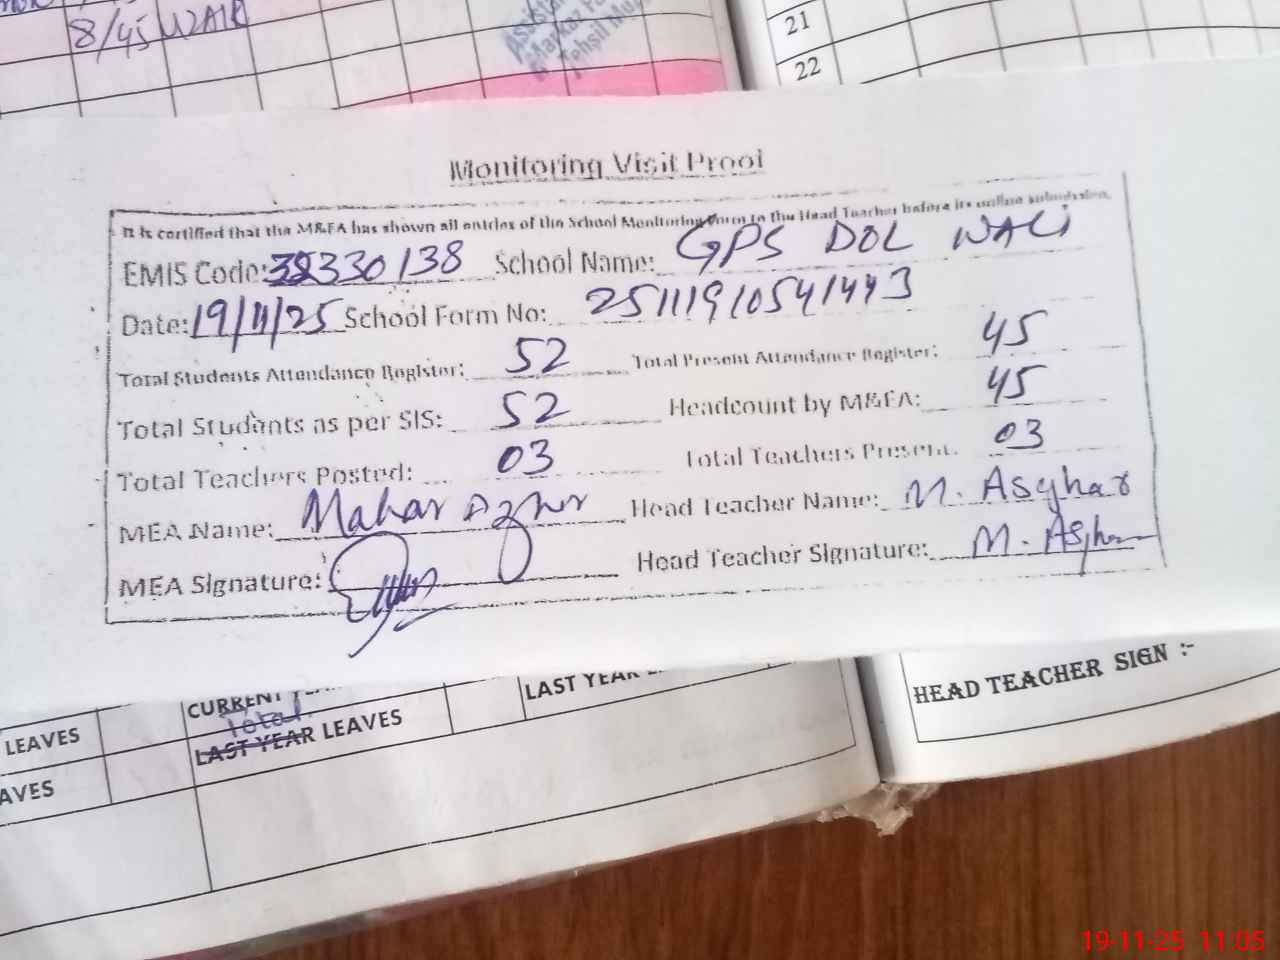 8/45 WALR
21
22
Monitoring Visit Proof
It is certified that the M&EA has shown all entries of the School Monitoring Form to the Head Teacher before its online submission.
EMIS Code: 32330138 School Name: GPS DOL WALi
Date: 19/11/25 School Form No: 25111910541443
Total Students Attendance Register: 52 Total Present Attendance Register: 45
Total Students as per SIS: 52 Headcount by M&EA: 45
Total Teachers Posted: 03 Total Teachers Present. 03
MEA Name: Mahar Azhr Head Teacher Name: M. Asghar
MEA Signature: Head Teacher Signature: M. Asghar
LEAVES CURRENT LAST YEAR
Total
LAST YEAR LEAVES
AVES
HEAD TEACHER SIGN :-
19-11-25 11:05